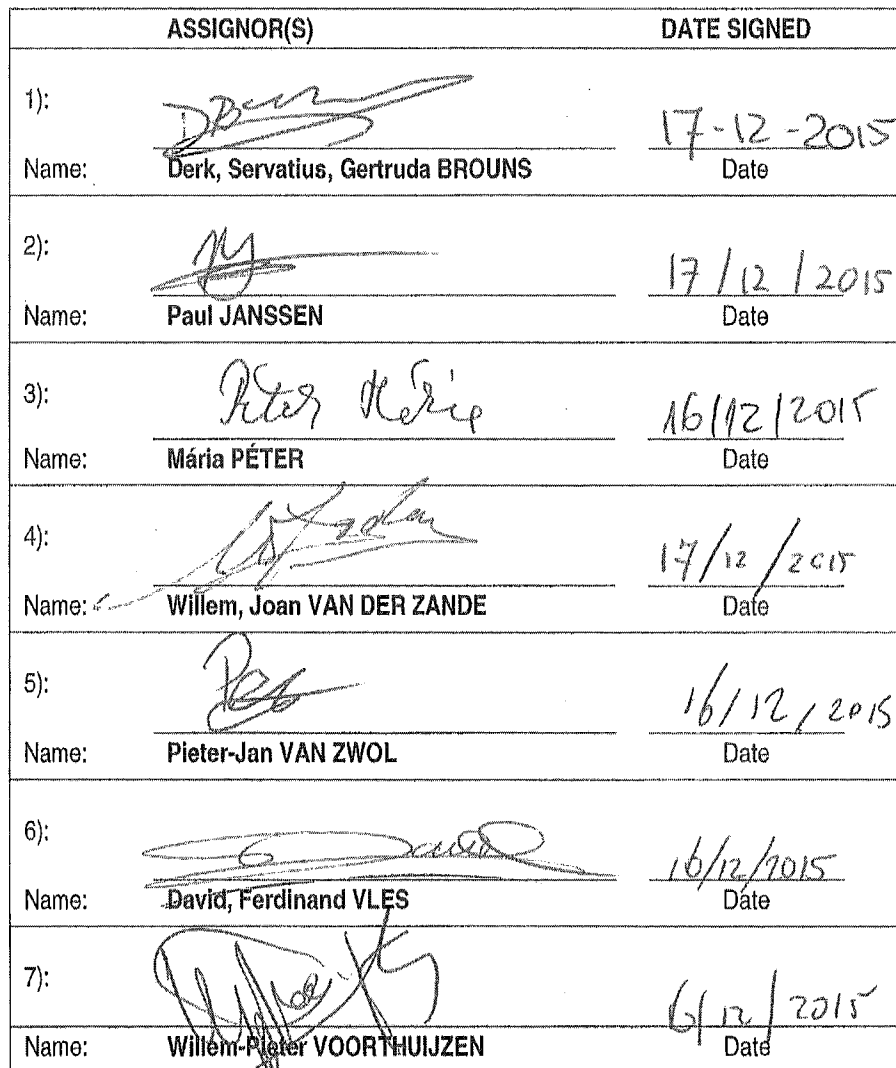 ASSIGNOR(S) DATE SIGNED
1): 17-12-2015
Name: Derk, Servatius, Gertruda BROUNS Date
2): 17/12/2015
Name: Paul JANSSEN Date
3): Péter Mária 16/12/2015
Name: Mária PÉTER Date
4): 17/12/2015
Name: Willem, Joan VAN DER ZANDE Date
5): 16/12/2015
Name: Pieter-Jan VAN ZWOL Date
6): 16/12/2015
Name: David, Ferdinand VLES Date
7): 6/12/2015
Name: Willem-Pieter VOORTHUIJZEN Date